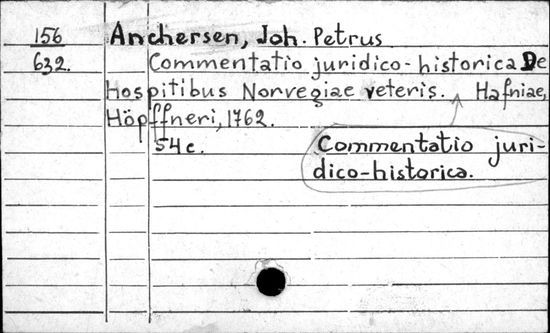 156 Anchersen, Joh. Petrus
632. Commentatio juridico-historica De
Hospitibus Norvegiae veteris. Hafniae,
Höpffneri, 1762.
54 c.
Commentatio juri-
dico-historica.